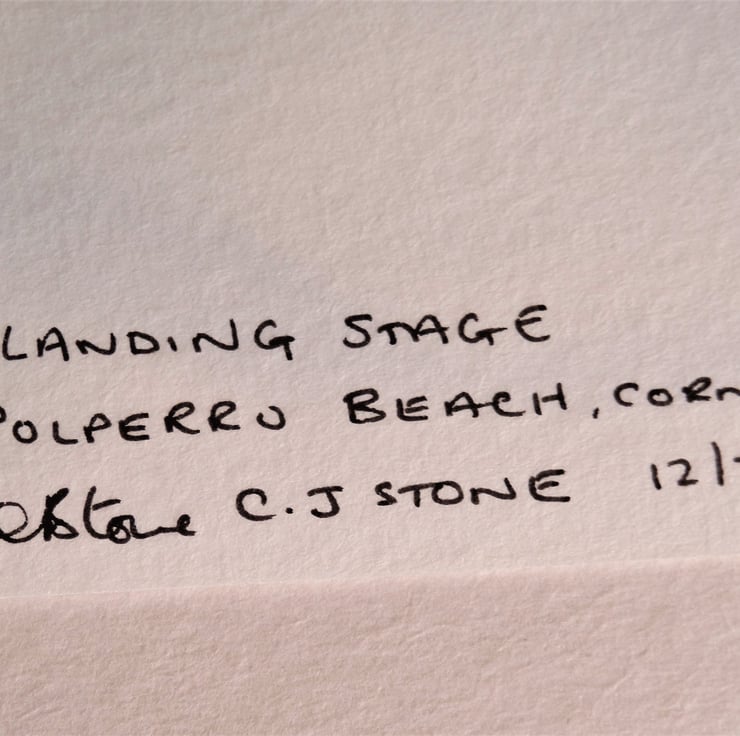 LANDING STAGE
POLPERRO BEACH, CORN
CJStone C.J STONE 12/